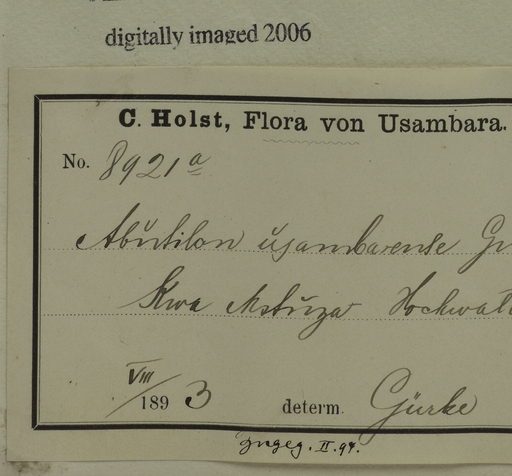 digitally imaged 2006
C. Holst, Flora von Usambara.
No. 8921 a
Abutilon usambarense
Kwa Mstuza
VIII
189 3 determ. Gürke
II. 94.